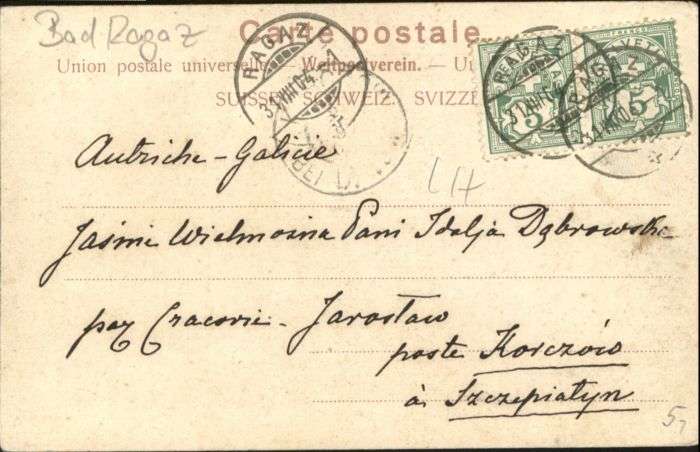 Bad Ragaz
Carte postale
Union postale universelle. — Weltpostverein. — Un
SUISSE. SCHWEIZ. SVIZZE
RAGAZ
31.VIII.04. 1
RAGAZ
31.VIII.04
RAGAZ
31.VIII.04
5
5
FRANCO
Autriche-Galicie
LH
Jaśnie Wielmożna Pani Idalja Dąbrowska
par Cracovie - Jarosław
poste Korczów
à Szczepiatyn
5,